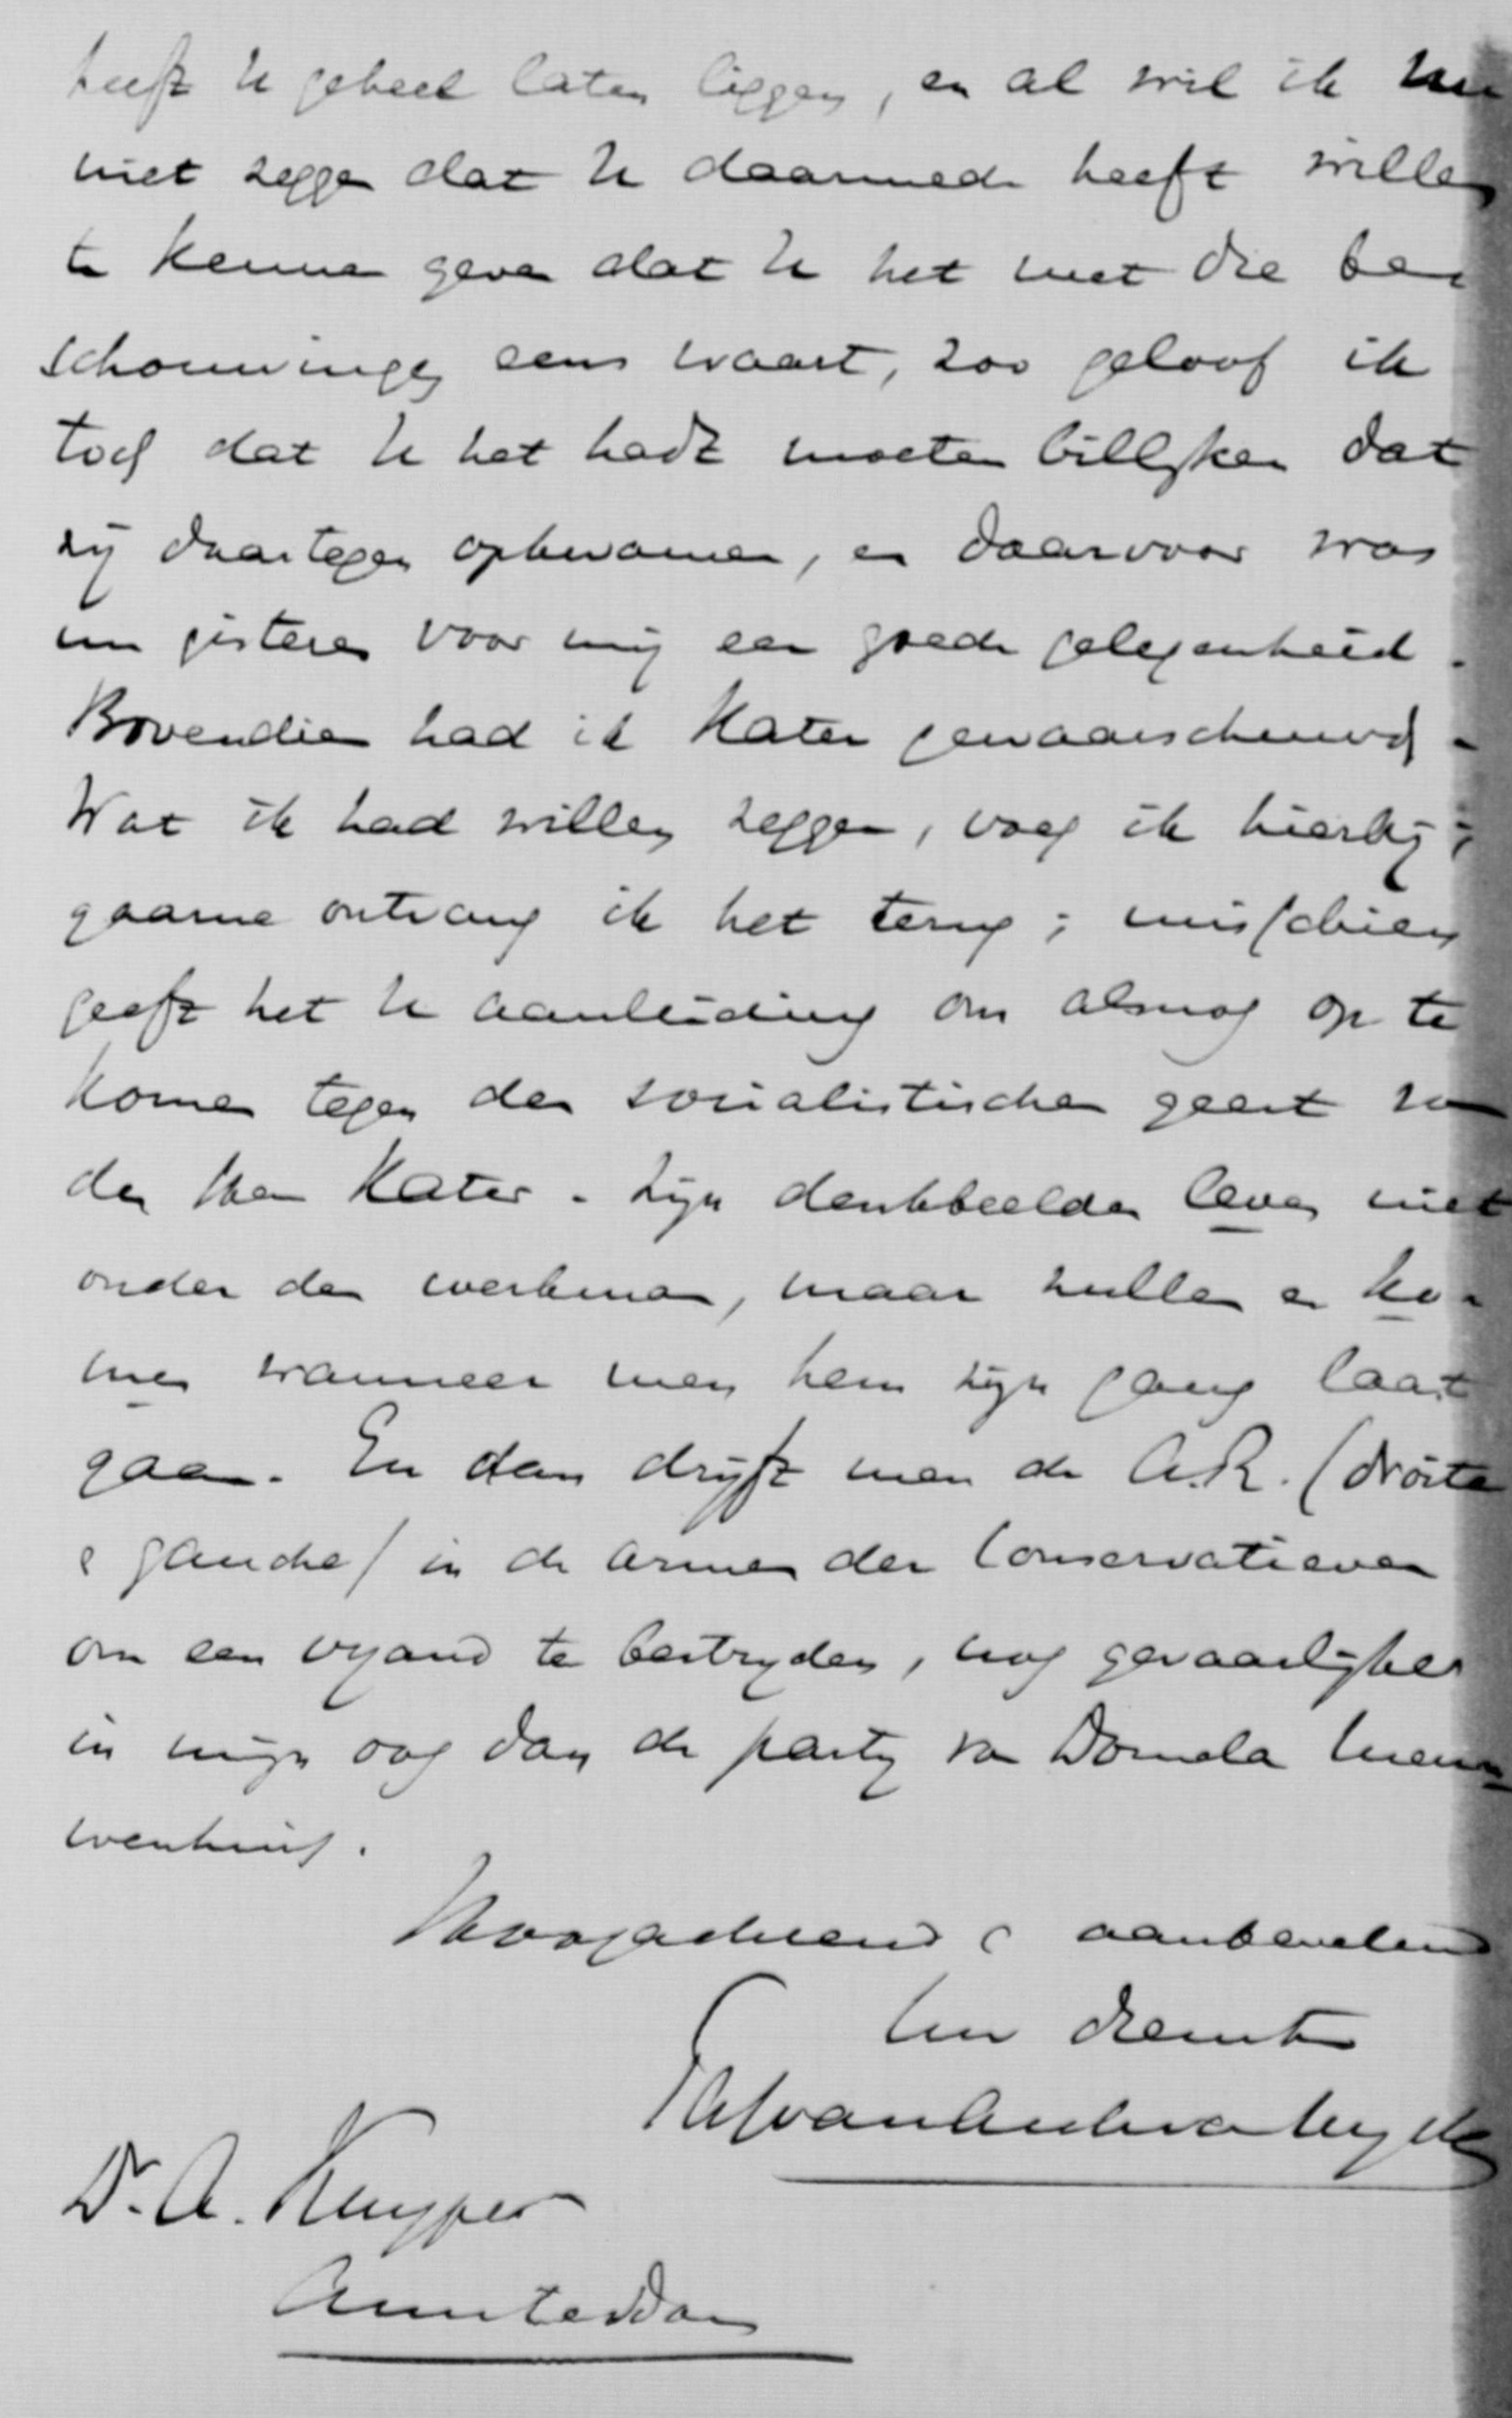 heeft U geheel laten liggen, en al wil ik nu
niet zeggen dat U daarmede heeft willen
te kennen geven dat U het met die be-
schouwingen eens waart, zoo geloof ik
toch dat U het hadt moeten billijken dat
wij daartegen opkwamen, en daarvoor was
nu gisteren voor mij een goede gelegenheid.
Bovendien had ik Kater gewaarschuwd.
Wat ik had willen zeggen, voeg ik hierbij;
gaarne ontvang ik het terug; misschien
geeft het U aanleiding om alsnog op te
komen tegen den socialistischen geest van
den Heer Kater. Zijn denkbeelden leven niet
onder den werkman, maar zullen er ko-
men wanneer men hem zijn gang laat
gaan. En dan drijft men de A.R. (droite
& gauche) in de armen der Conservatieven
om een vijand te bestrijden, nog gevaarlijker
in mijn oog dan de partij van Domela Nieu-
wenhuis.
Hoogachtend & aanbevelend
Uw dienstv
Dr. A. Kuyper
Amsterdam